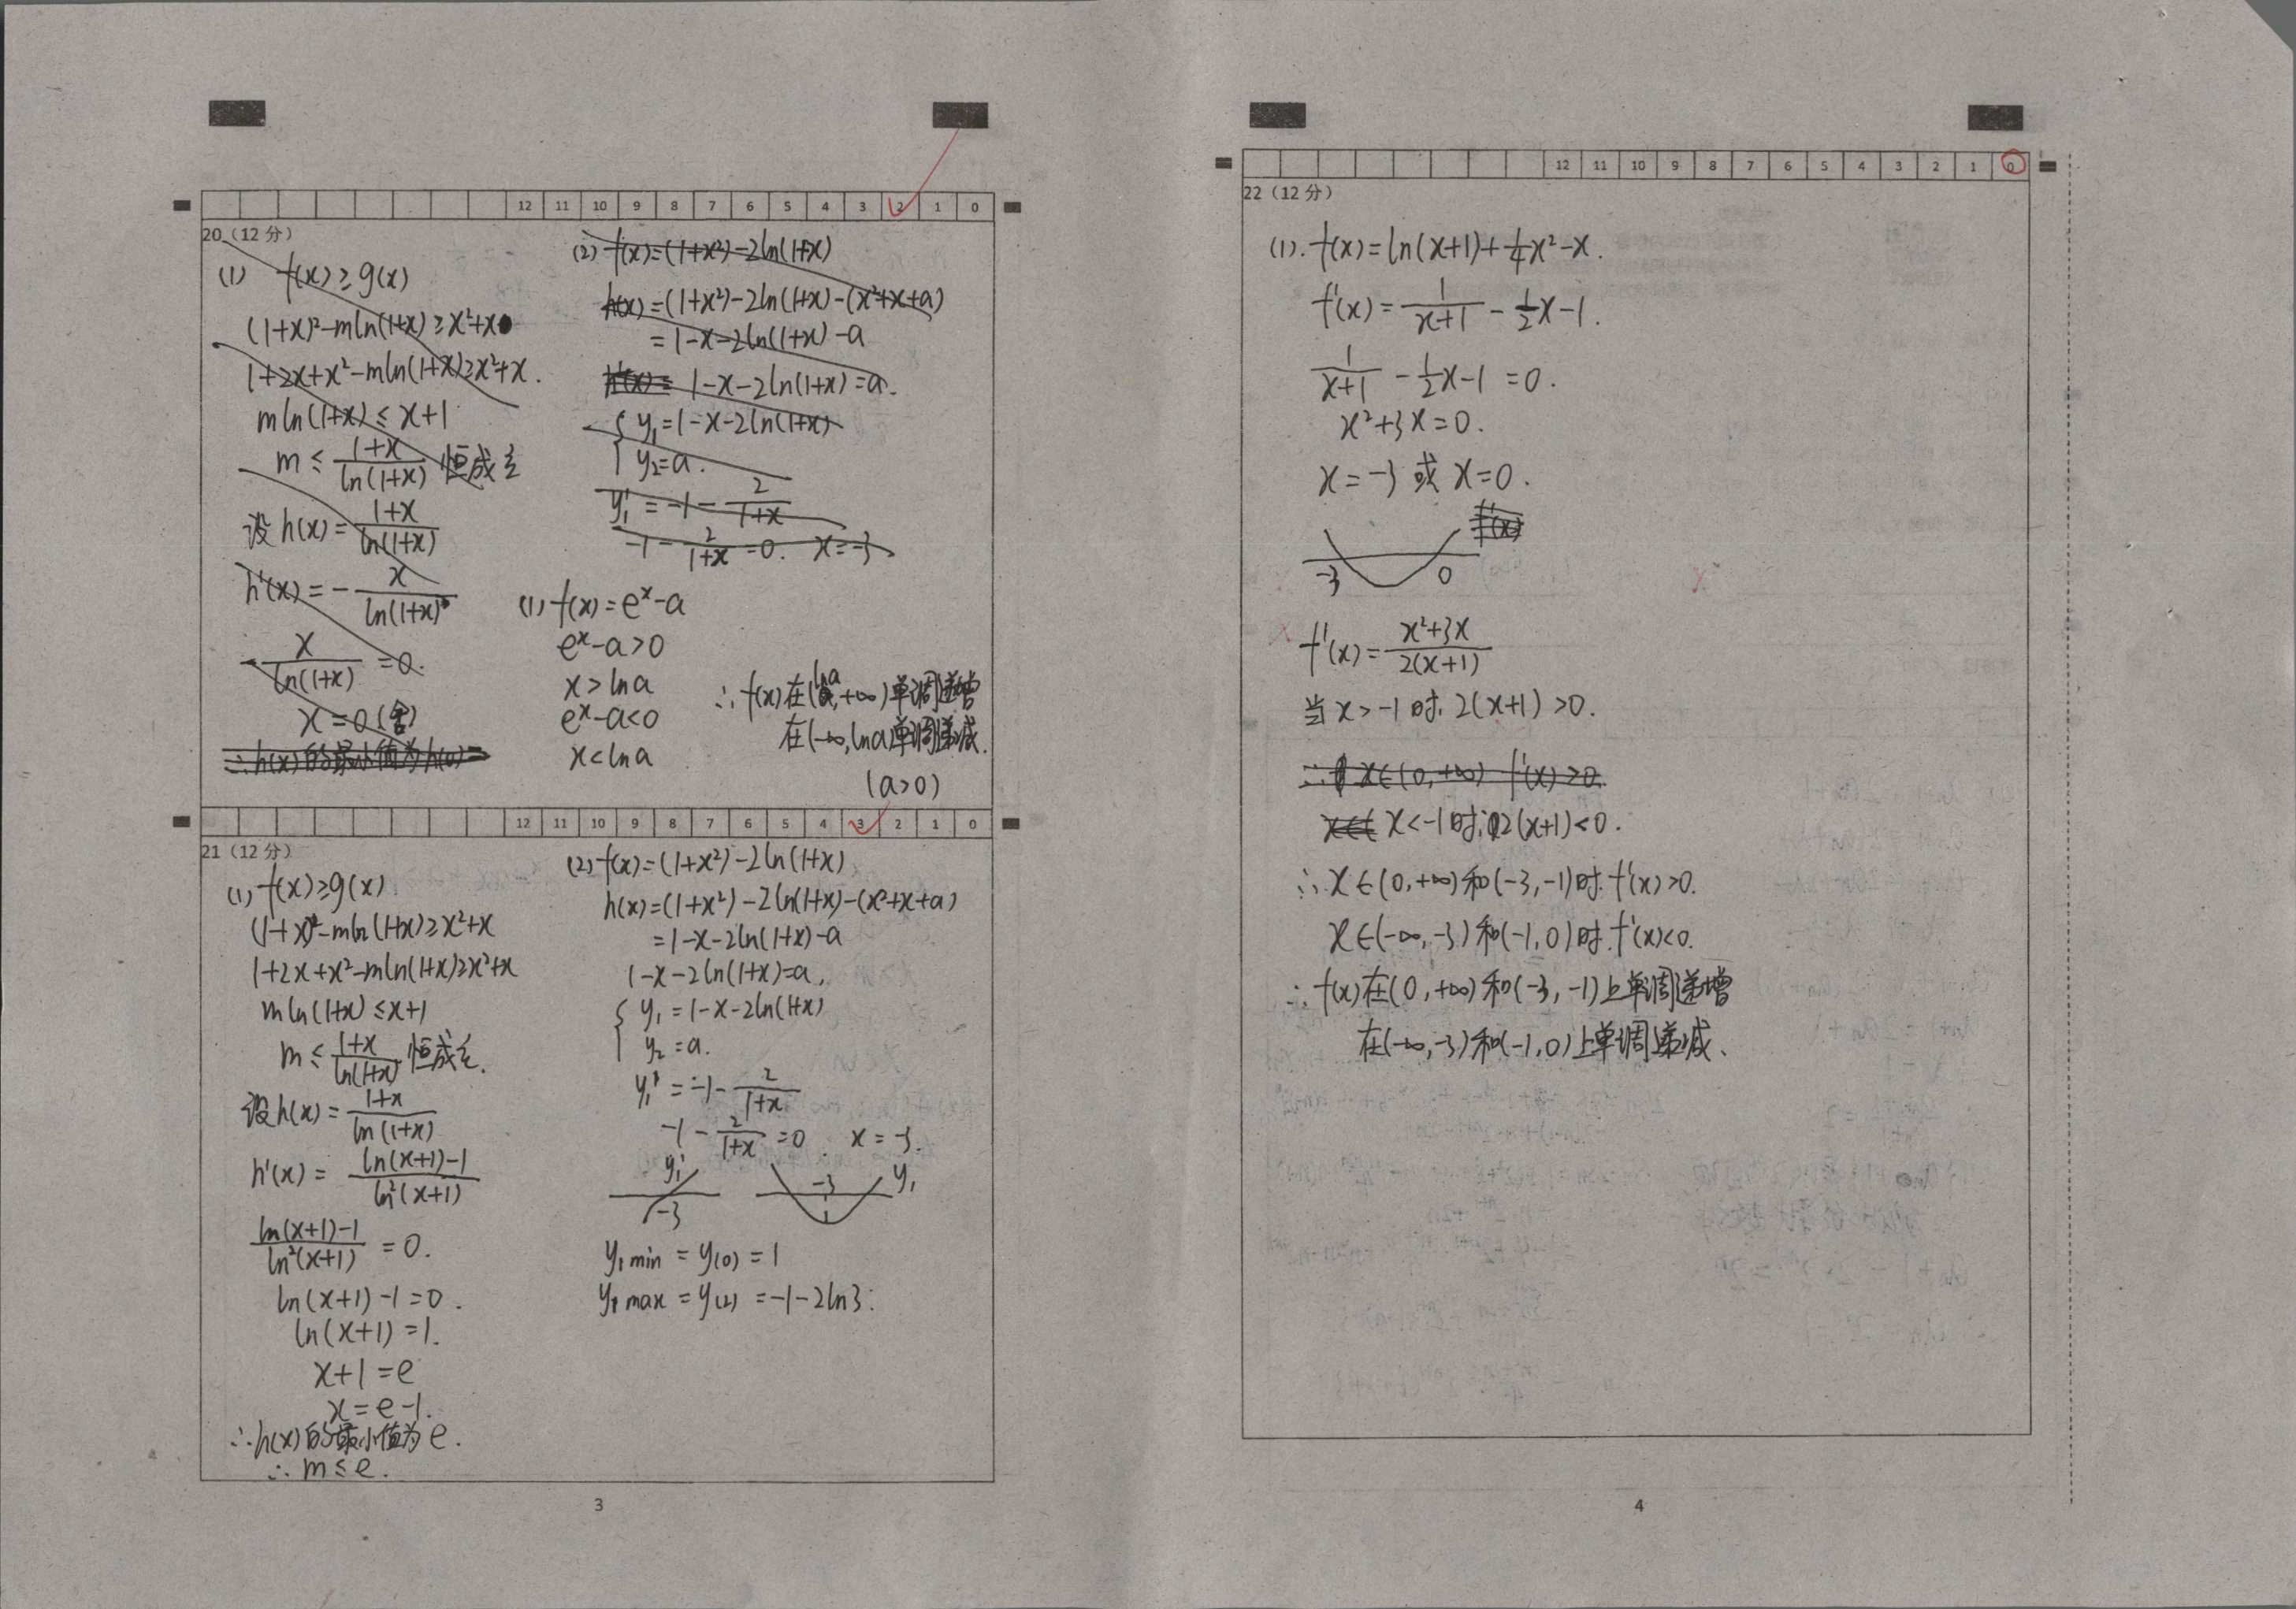 12 11 10 9 8 7 6 5 4 3 2 1 0
20（12 分）
(1) f(x)≥g(x)
(1+x)²-mln(1+x)≥x²+x
1+2x+x²-mln(1+x)≥x²+x.
mln(1+x)≤x+1
m≤(1+x)/ln(1+x) 恒成立
设h(x)=(1+x)/ln(1+x)
h'(x)=-x/ln(1+x)
-x/ln(1+x)=0.
x=0(舍)
∴h(x)的最小值为h(0)=
(2) f(x)=(1+x²)-2ln(1+x)
h(x)=(1+x²)-2ln(1+x)-(x²+x+a)
=1-x-2ln(1+x)-a
h'(x)= 1-x-2ln(1+x)=a.
{ y₁=1-x-2ln(1+x)
y₂=a.
y₁'=-1-2/(1+x)
-1-2/(1+x)=0. x=-3
(1) f(x)=eˣ-a
eˣ-a>0
x>lna
eˣ-a<0
x<lna
∴f(x)在(lna,+∞)单调递增
在(-∞,lna)单调递减.
(a>0)
12 11 10 9 8 7 6 5 4 3 2 1 0
21（12 分）
(1) f(x)≥g(x)
(1+x)²-mln(1+x)≥x²+x
1+2x+x²-mln(1+x)≥x²+x
mln(1+x)≤x+1
m≤(1+x)/ln(1+x) 恒成立.
设h(x)=(1+x)/ln(1+x)
h'(x)=(ln(x+1)-1)/ln²(x+1)
(ln(x+1)-1)/ln²(x+1)=0.
ln(x+1)-1=0.
ln(x+1)=1.
x+1=e
x=e-1.
∴h(x)的最小值为e.
∴m≤e.
(2) f(x)=(1+x²)-2ln(1+x)
h(x)=(1+x²)-2ln(1+x)-(x²+x+a)
=1-x-2ln(1+x)-a
1-x-2ln(1+x)=a,
{ y₁=1-x-2ln(1+x)
y₂=a.
y₁'=-1-2/(1+x)
-1-2/(1+x)=0. x=-3.
y₁' -3 y₁
-3
y₁min=y(0)=1
y₁max=y(2)=-1-2ln3.
3
12 11 10 9 8 7 6 5 4 3 2 1 0
22（12 分）
(1). f(x)=ln(x+1)+1/4x²-x.
f'(x)=1/(x+1)-1/2x-1.
1/(x+1)-1/2x-1=0.
x²+3x=0.
x=-3或x=0.
f'(x)
-3 0
f'(x)=(x²+3x)/2(x+1)
当x>-1时,2(x+1)>0.
∴ x∈(0,+∞) f'(x)>0.
x<-1时,2(x+1)<0.
∴x∈(0,+∞)和(-3,-1)时.f'(x)>0.
x∈(-∞,-3)和(-1,0)时.f'(x)<0.
∴f(x)在(0,+∞)和(-3,-1)上单调递增
在(-∞,-3)和(-1,0)上单调递减、
4